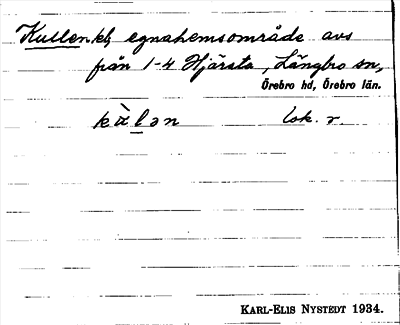 Kullen kl, egnahemsområde avs
från 1-4 Hjärsta, Längbro sn,
Örebro hd, Örebro län.
kälən lok. r.
KARL-ELIS NYSTEDT 1934.